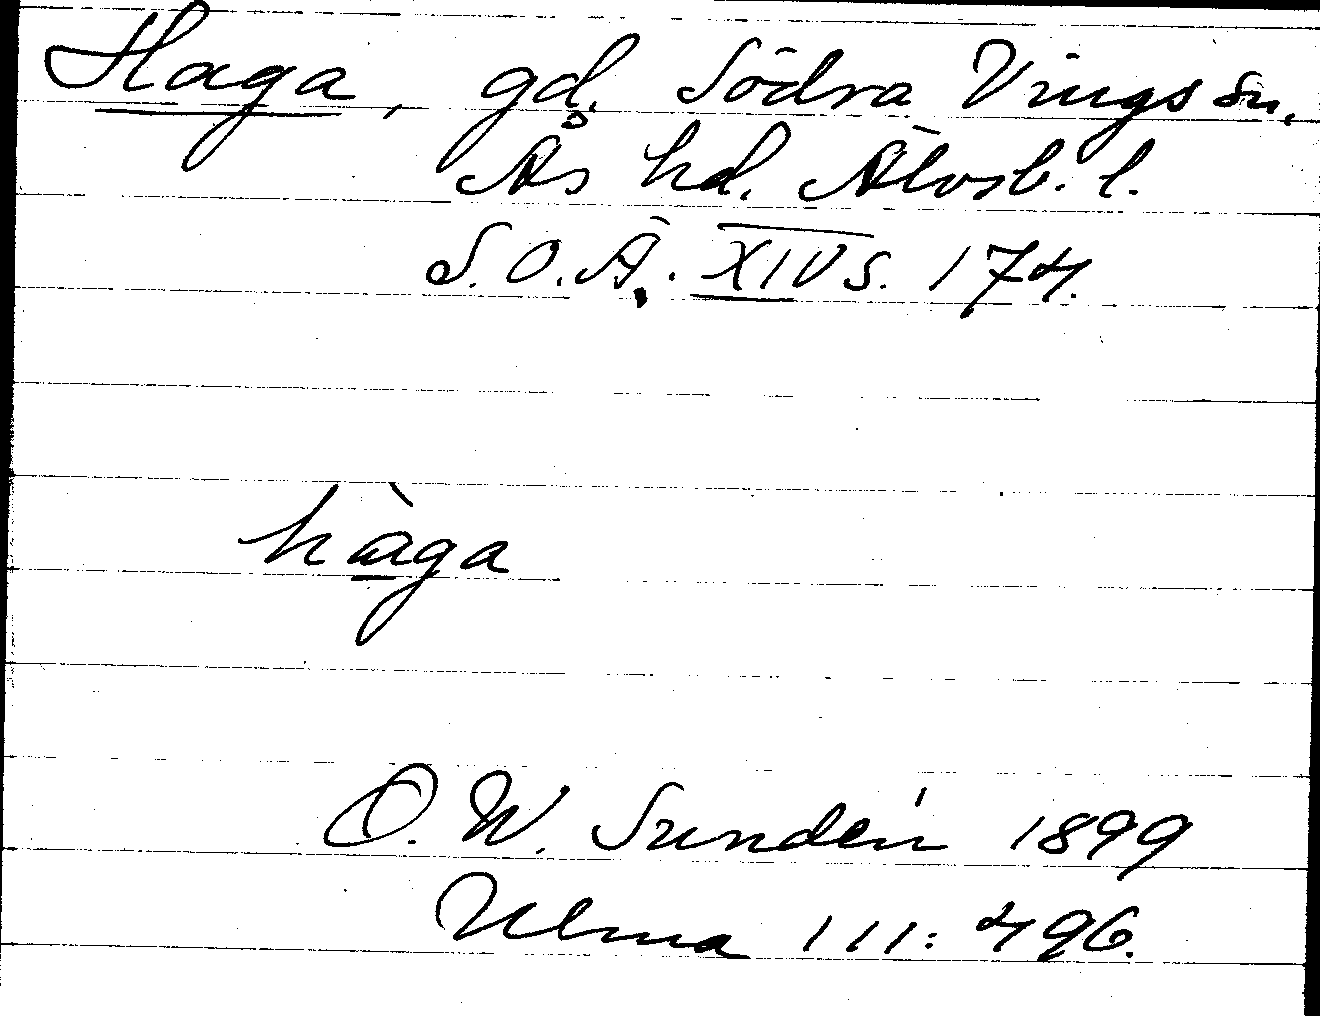 Haga, gd. Södra Vings sn.
Ås hd. Älvsb. l.
S.O.Ä. XIV s. 174.
hàga
O. W. Sundén 1899
Ulma 111: 496.